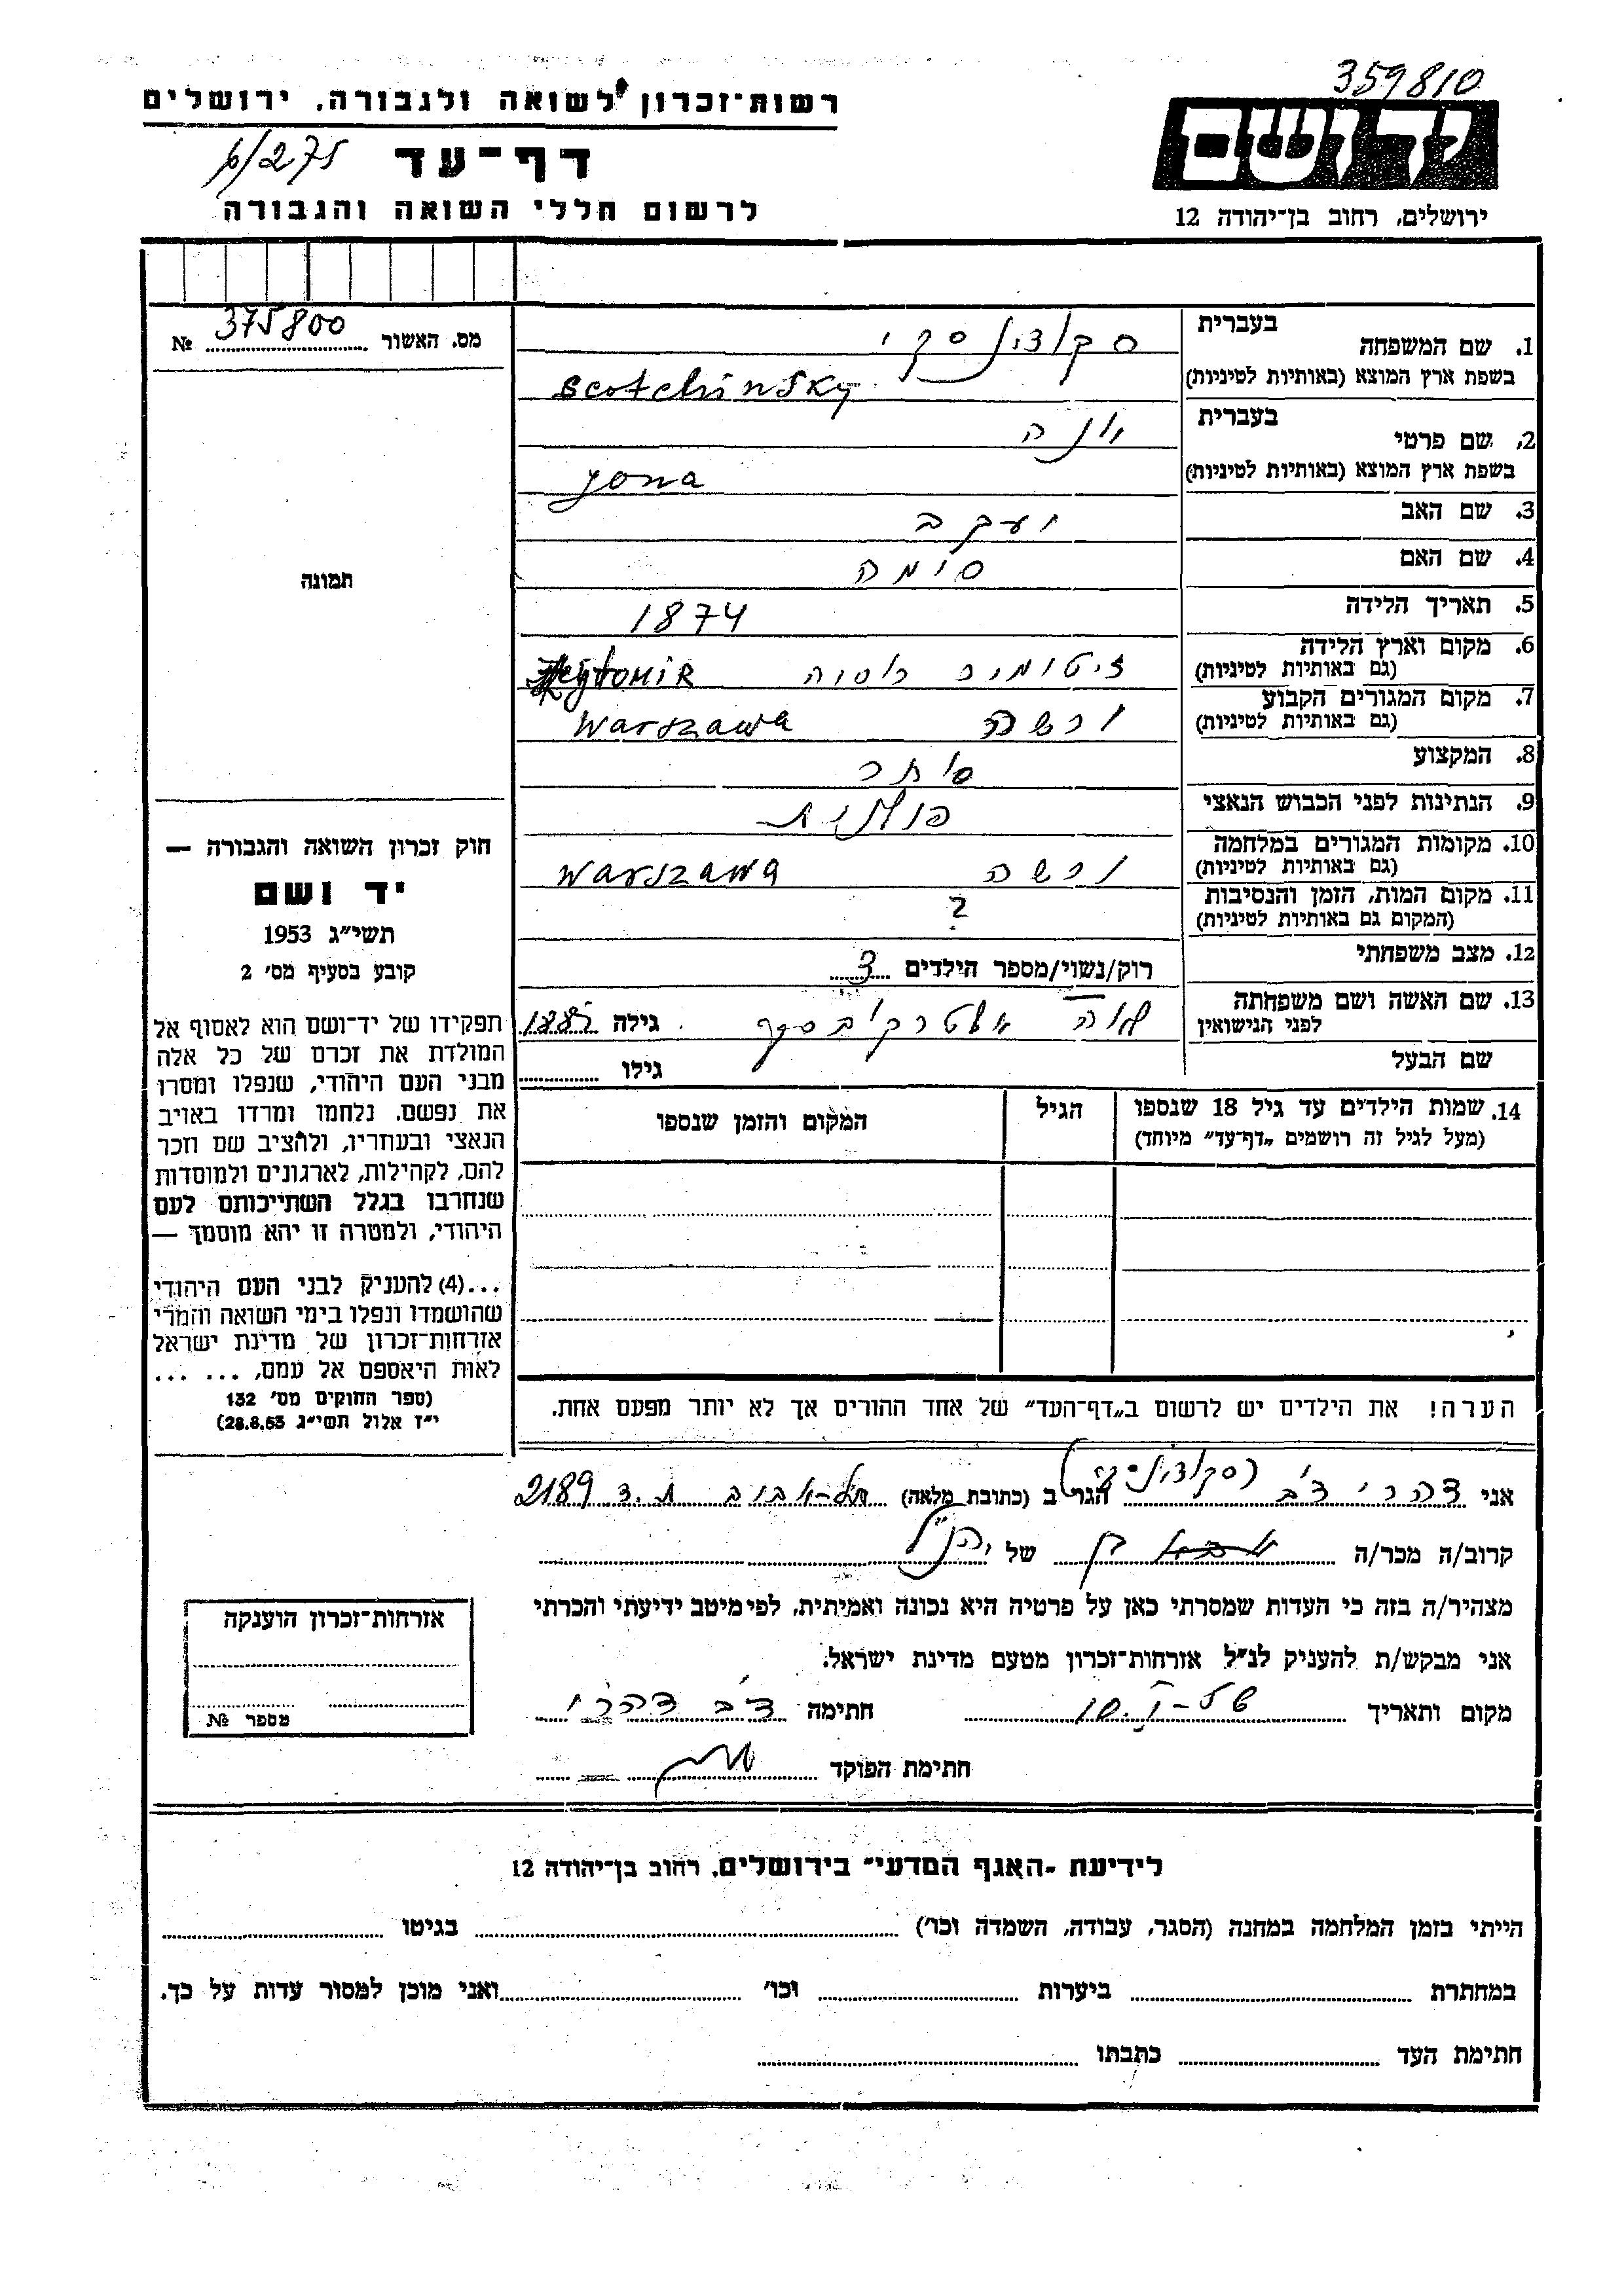 359810
רשות־זכרון לשואה ולגבורה, ירושלים
דף־עד
6/275
לרשום חללי השואה והגבורה
יד ושם
ירושלים, רחוב בן־יהודה 12
מס. האשור 375800 №
1. שם המשפחה
בעברית
בשפת ארץ המוצא (באותיות לטיניות)
Scotchinsky
2. שם פרטי
בעברית יונה
בשפת ארץ המוצא (באותיות לטיניות)
Jona
3. שם האב יעקב
4. שם האם סימה
5. תאריך הלידה 1874
6. מקום וארץ הלידה
(גם באותיות לטיניות)
ז'יטומיר רוסיה
7. מקום המגורים הקבוע
(גם באותיות לטיניות)
ורשה Warszawa
8. המקצוע סוחר
9. הנתינות לפני הכבוש הנאצי פולנית
10. מקומות המגורים במלחמה
(גם באותיות לטיניות)
ורשה Warszawa
11. מקום המות, הזמן והנסיבות
(המקום גם באותיות לטיניות)
?
12. מצב משפחתי
רוק/נשוי/מספר הילדים 3
13. שם האשה ושם משפחתה
לפני הנישואין
לאה גילה
שם הבעל גילו
14. שמות הילדים עד גיל 18 שנספו
(מעל לגיל זה רושמים „דף־עד" מיוחד)
הגיל
המקום והזמן שנספו
תמונה
חוק זכרון השואה והגבורה —
יד ושם
תשי״ג 1953
קובע בסעיף מס׳ 2
תפקידו של יד־ושם הוא לאסוף אל
המולדת את זכרם של כל אלה
מבני העם היהודי, שנפלו ומסרו
את נפשם, נלחמו ומרדו באויב
הנאצי ובעוזריו, ולהציב שם וזכר
להם, לקהילות, לארגונים ולמוסדות
שנחרבו בגלל השתייכותם לעם
היהודי, ולמטרה זו יהא מוסמך —
...(4) להעניק לבני העם היהודי
שהושמדו ונפלו בימי השואה והמרי
אזרחות־זכרון של מדינת ישראל
לאות היאספם אל עמם, ... ...
(ספר החוקים מס׳ 132
י״ז אלול תשי״ג 28.8.53)
הערה! את הילדים יש לרשום ב„דף־העד" של אחד ההורים אך לא יותר מפעם אחת.
אני דב הגר ב (כתובת מלאה) תל-אביב ת.ד 2189
קרוב/ה מכר/ה בן של הנ"ל
מצהיר/ה בזה כי העדות שמסרתי כאן על פרטיה היא נכונה ואמיתית, לפי מיטב ידיעתי והכרתי
אני מבקש/ת להעניק לנ״ל אזרחות־זכרון מטעם מדינת ישראל.
מקום ותאריך חתימה דב
חתימת הפוקד
אזרחות־זכרון הוענקה
מספר №
לידיעת ־האגף המדעי־ בירושלים, רחוב בן־יהודה 12
הייתי בזמן המלחמה במחנה (הסגר, עבודה, השמדה וכו׳) בגיטו
במחתרת ביערות וכו׳ ואני מוכן למסור עדות על כך.
חתימת העד כתבתו